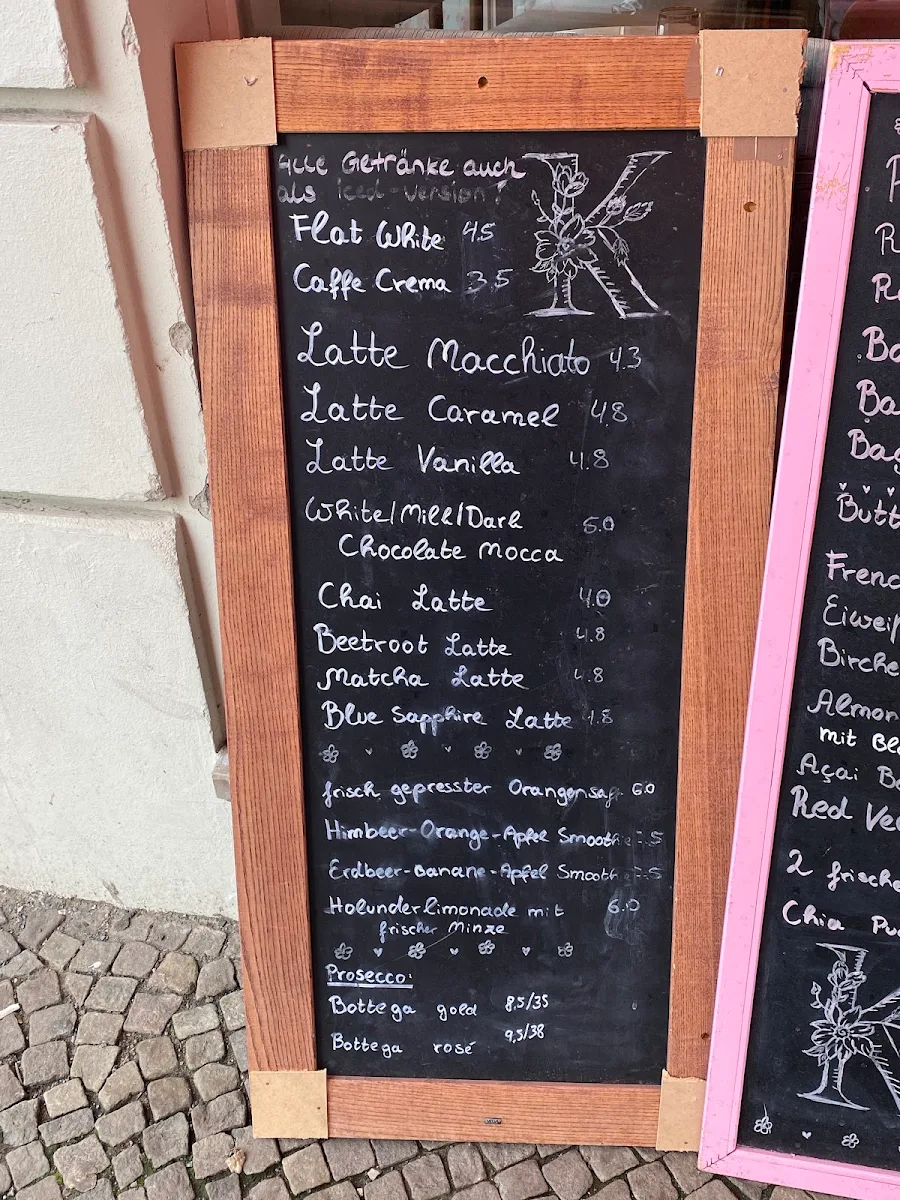 Alle Getränke auch
als iced-version!
K
Flat White 4.5
Caffe Crema 3.5
Latte Macchiato 4.3
Latte Caramel 4.8
Latte Vanilla 4.8
White/Milk/Dark 5.0
Chocolate Mocca
Chai Latte 4.0
Beetroot Latte 4.8
Matcha Latte 4.8
Blue Sapphire Latte 4.8
frisch gepresster Orangensaf 6.0
Himbeer-Orange-Apfel Smoothie
Erdbeer-Banane-Apfel Smooth
Holunderlimonade mit 6.0
frischer Minze
Prosecco:
Bottega gold 8,5/35
Bottega rosé 9,5/38
R
Ba
Ba
Bag
Butt
Frenc
Eiweiß
Birche
Almon
mit Bl
Açai Bo
Red Ve
2 frische
Chia Pu
K